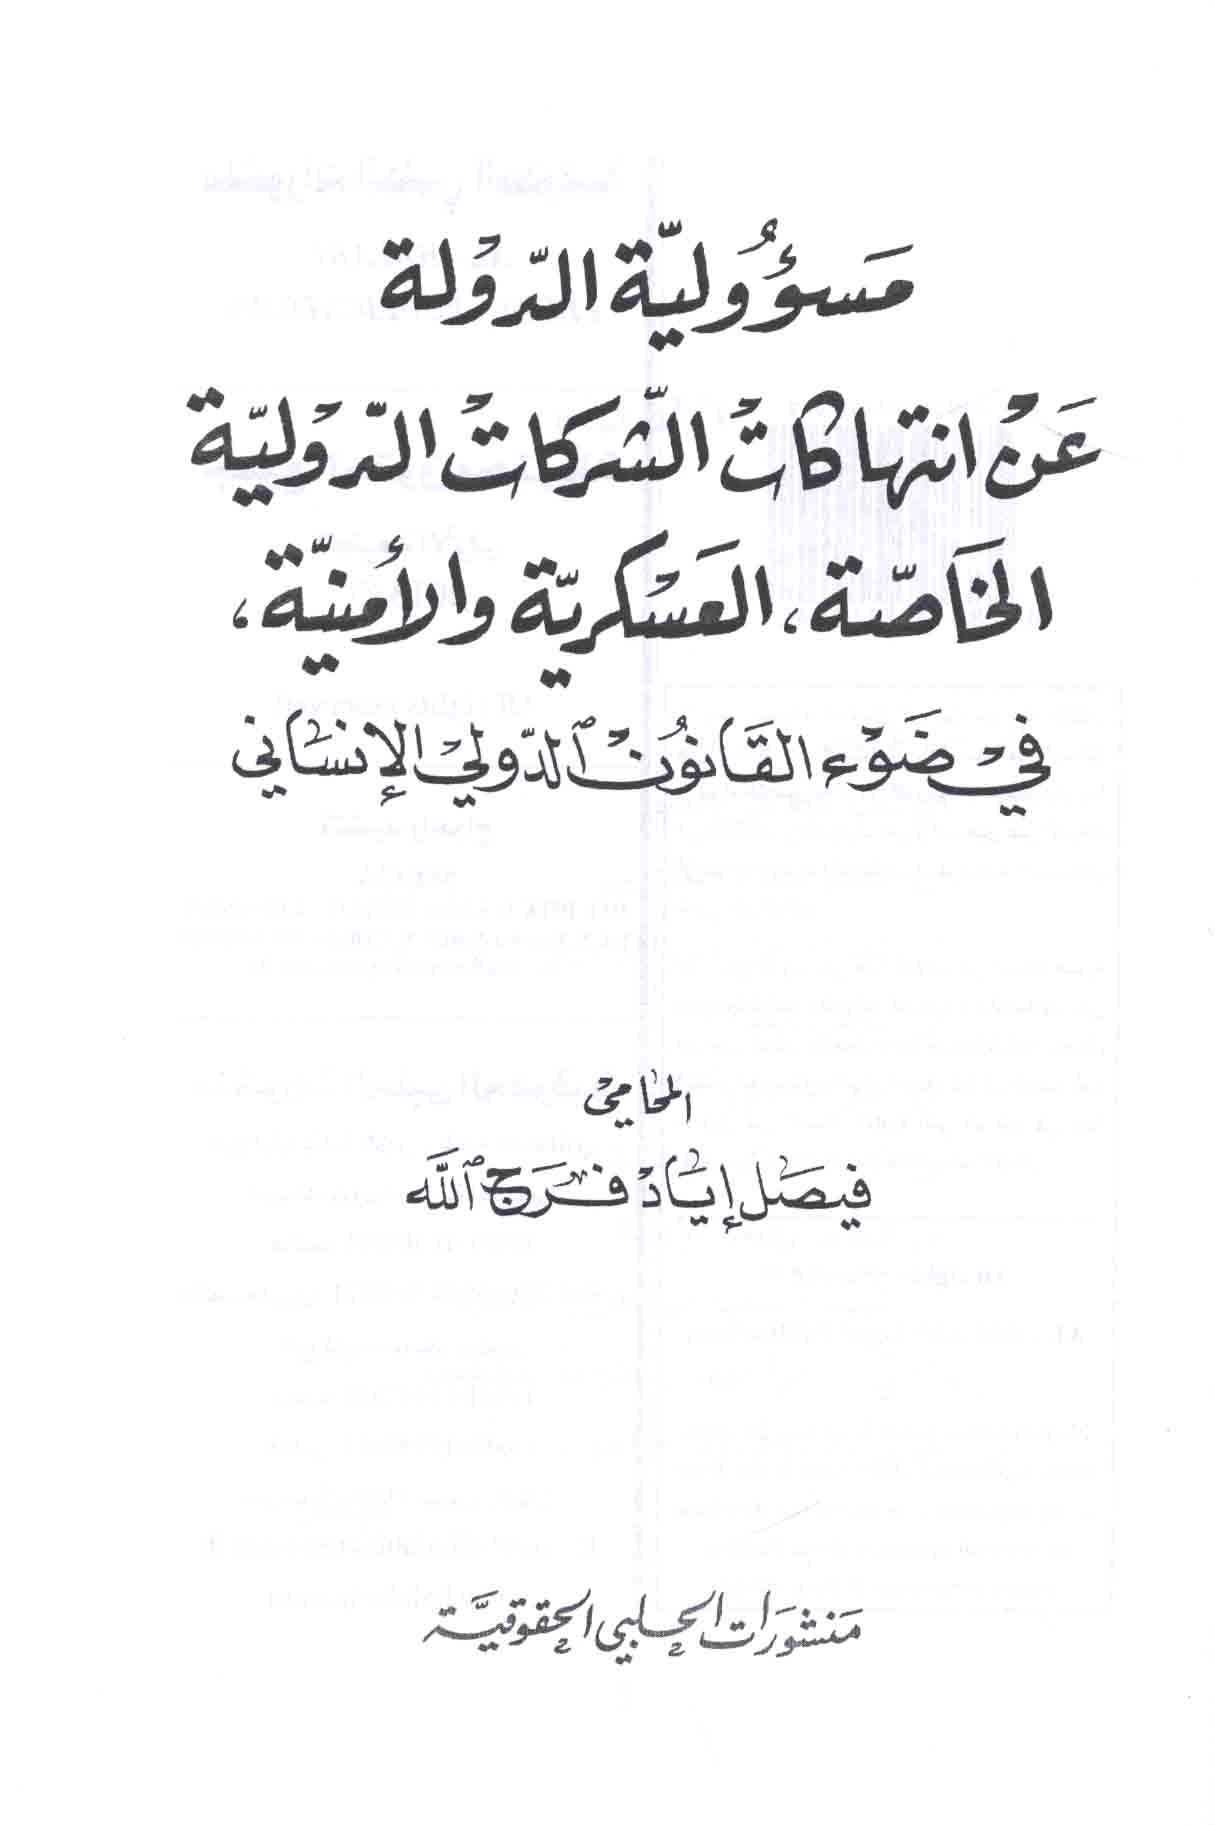 مسؤُوليّة الدّوْلة
عَنْ انتهاكاتْ الشّركاتْ الدّوْليّة
الخَاصّة، العَسْكريّة والأمنيّة،
فيْ ضَوْء القَانوُنْ الدّوليْ الإنسَاني
المحَاميْ
فيصَل إيَادْ فَرَج الله
مَنشورَات الحلبي الحقوقيَّة